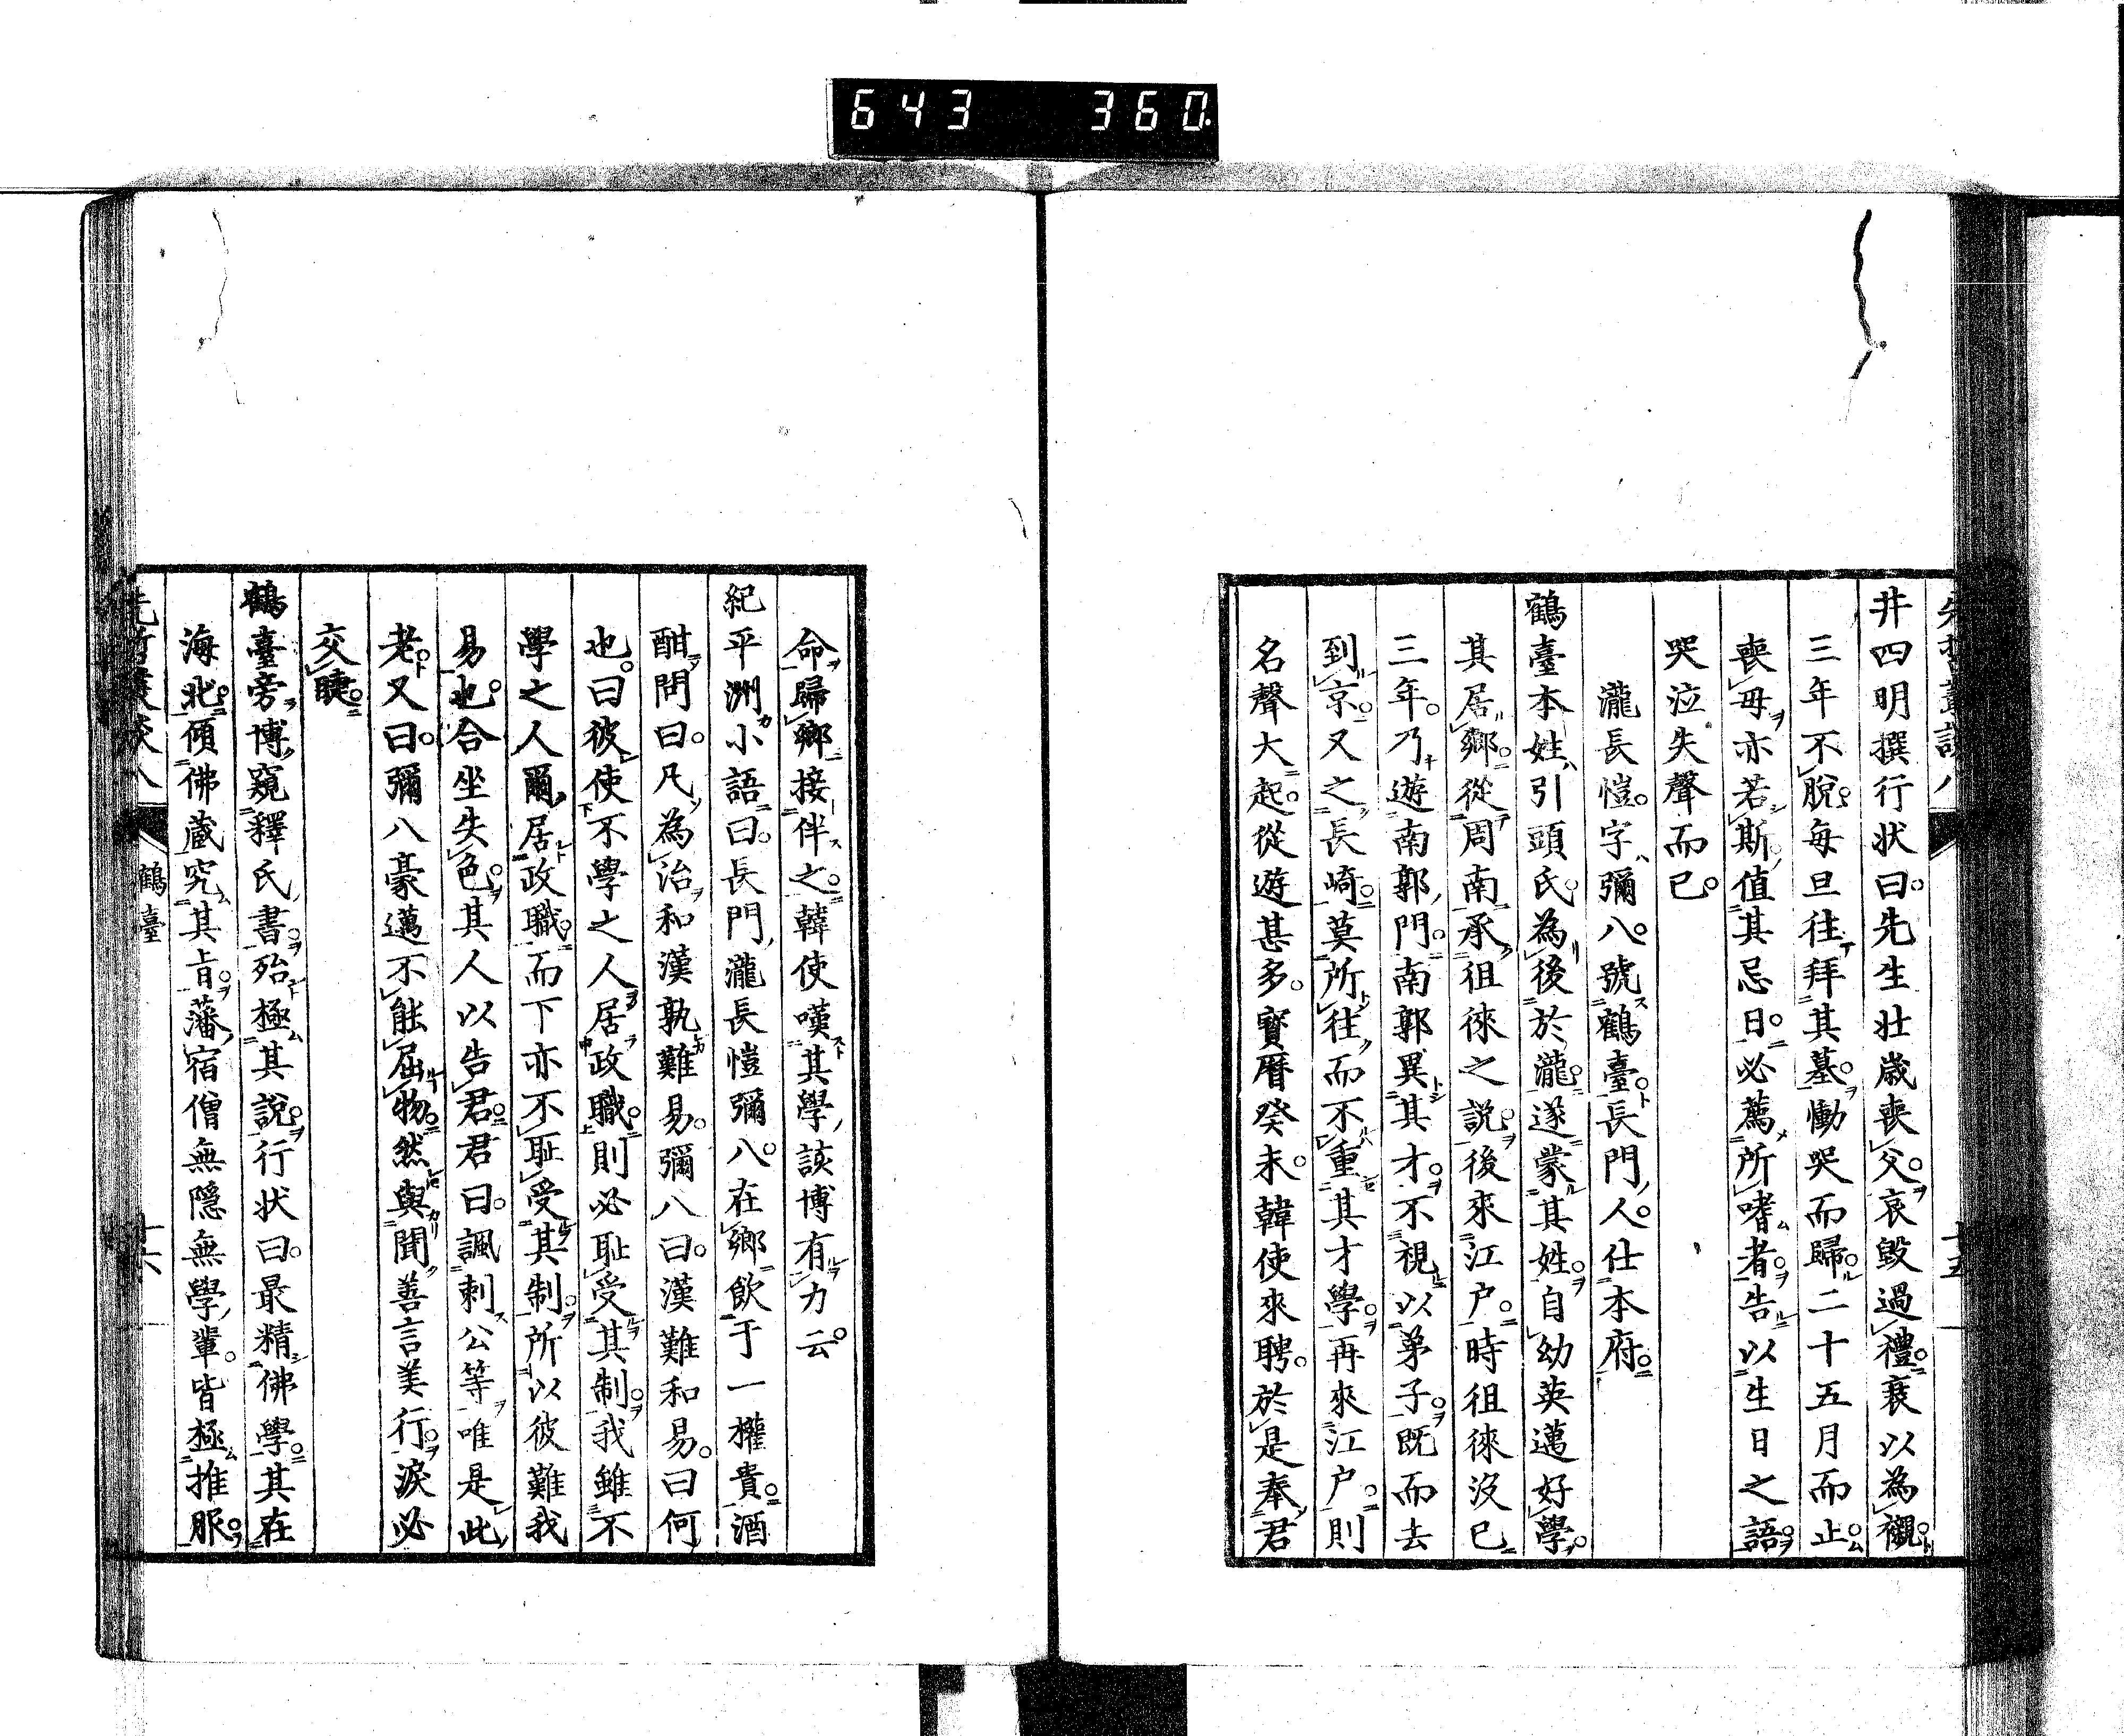 643 360
井四明撰行状曰。先生壮歳喪父。哀毀過禮。衰以為襯。
三年不脫。毎旦往拜其墓。慟哭而歸。二十五月而止。
喪母亦若斯。值其忌日。必薦所嗜者。告以生日之語。
哭泣失聲而已。
瀧長愷。字彌八。號鶴臺。長門人。仕本府。
鶴臺本姓引頭氏。為後於瀧。遂蒙其姓。自幼英邁好學。
其居鄉。從周南承徂徠之説。後來江户。時徂徠沒已
三年。乃遊南郭門。南郭異其才。不視以弟子。既而去
到京。又之長崎。莫所往而不重其才學。再來江户。則
名聲大起。從遊甚多。寳曆癸未。韓使來聘。於是奉君
命歸鄉接伴之。韓使嘆其學該博有力云。
紀平洲小語曰。長門瀧長愷彌八。在鄉飲于一權貴。酒
酣問曰。凡為治和漢孰難易。彌八曰。漢難和易。曰何
也。曰彼使不學之人居政職。則必耻受其制。我雖不
學之人爾居政職。而下亦不耻受其制。所以彼難我
易也。合坐失色。其人以告君。君曰。諷刺公等。唯是此
老。又曰。彌八豪邁不能屈物。然與聞善言美行。淚必
交睫。
鶴臺旁博窺釋氏書。殆極其說。行状曰。最精佛學。其在
海北。傾佛蔵究其旨。藩宿僧無隠無學輩。皆極推服。
鶴臺
十六